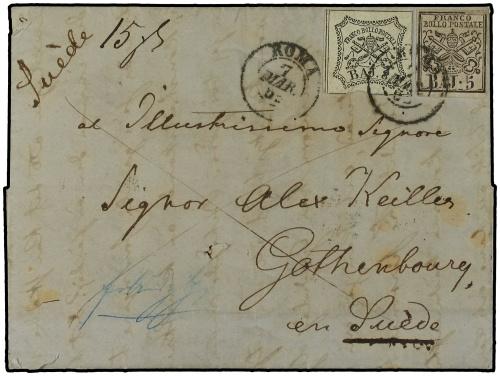 Suède
FRANCO
BOLLO POSTALE
BAJ
FRANCO
BOLLO POSTALE
BAJ. 5
ROMA
7
MAR
al Illustrissimo Signore
Signor Alex Keiller
Gothenbourg
en Suède